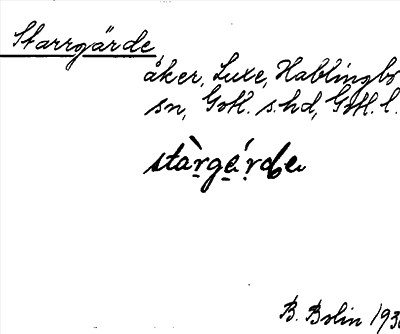 Starrgärde,
åker, Luxe, Hablingbo
sn, Gotl. s. hd, Gotl. l.
stàrgä́rde
B. Bolin 193